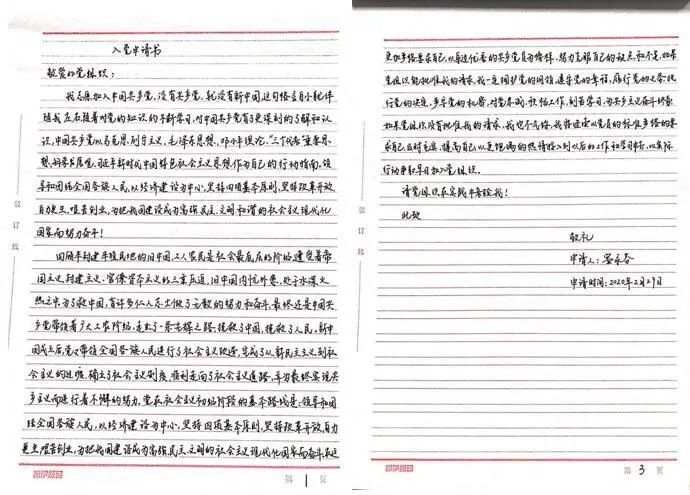 入党申请书
敬爱的党组织：
我志愿加入中国共产党，没有共产党，就没有新中国，这句格言自小就伴
随我左右随着对党的知识的不断学习，对中国共产党有了更深刻的了解和认
识，中国共产党以马克思列宁主义，毛泽东思想，邓小平理论，“三个代表”重要思
想，科学发展观，习近平新时代中国特色社会主义思想作为自己的行动指南，领
导和团结全国各族人民，以经济建设为中心，坚持四项基本原则，坚持改革开放
自力更生，艰苦创业，为把我国建设成为富强民主，文明和谐的社会主义现代化
国家而努力奋斗！
回顾半封建半殖民地的旧中国，工人农民是社会最底层的阶级，遭受着帝
国主义，封建主义，官僚资本主义的三重压迫，旧中国内忧外患，处于水深火
热之中，为了救中国，有许多仁人志士做了无数的努力和奋斗，最终还是中国共
产党带领着广大工农阶级，走出了一条光辉之路，挽救了中国，挽救了人民，新中
国成立后，党又带领全国各族人民进行了社会主义改造，完成了从新民主主义到社
会主义的过渡，确立了社会主义制度，顺利走向了社会主义道路，并为最终实现共
产主义而进行着不懈的努力，党在社会主义初级阶段的基本路线是：领导和团
结全国各族人民，以经济建设为中心，坚持四项基本原则，坚持改革开放，自力
更生，艰苦创业，为把我国建设成为富强，民主，文明的社会主义现代化国家而奋斗
装
订
线
第 1 页
更加严格要求自己，以身边优秀的共产党员为榜样，努力克服自己的缺点和不足，如果
党组织能批准我的请求，我一定拥护党的纲领，遵守党的章程，履行党的义务，执
行党的决定，严守党的机密，对党忠诚，积极工作，刻苦学习，为共产主义奋斗终身
如果党组织没有批准我的请求，我也不气馁，我将继续以党员的标准严格的要
求自己，及时充实，提高自己，以更饱满的热情投入到以后的工作和学习中去，以实际
行动争取早日加入党组织。
请党组织在实践中考验我！
此致
敬礼
申请人：
申请时间：2020年2月29日
装
订
线
第 3 页